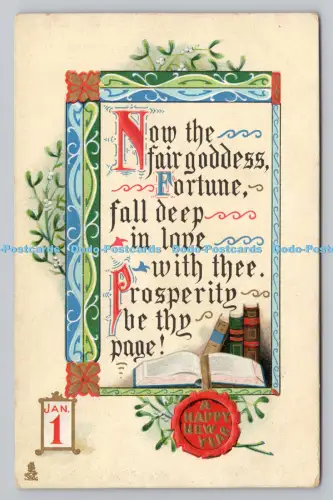 Now the
fair goddess,
Fortune,
fall deep
in love
with thee.
Prosperity
be thy
page!
JAN.
1
A
HAPPY
NEW
YEAR
Postcards Dodo-Postcards Dodo-Postcards Dodo-Postcards Dodo-Postcards